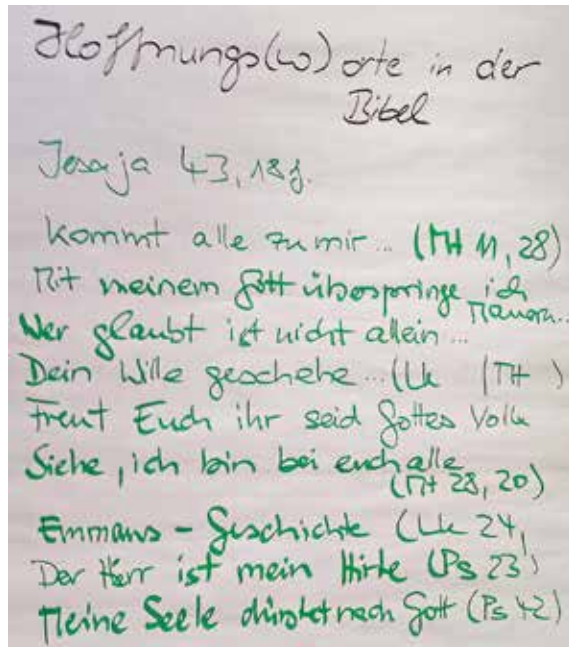 Hoffnungs(w)orte in der
Bibel
Jesaja 43, 18f.
Kommt alle zu mir... (Mt 11, 28)
Mit meinem Gott überspringe ich
Mauern...
Wer glaubt ist nicht allein...
Dein Wille geschehe... (Lk | Mt )
Freut Euch ihr seid Gottes Volk
Siehe, ich bin bei euch alle
(Mt 28, 20)
Emmaus - Geschichte (Lk 24,
Der Herr ist mein Hirte (Ps 23)
Meine Seele dürstet nach Gott (Ps 42)